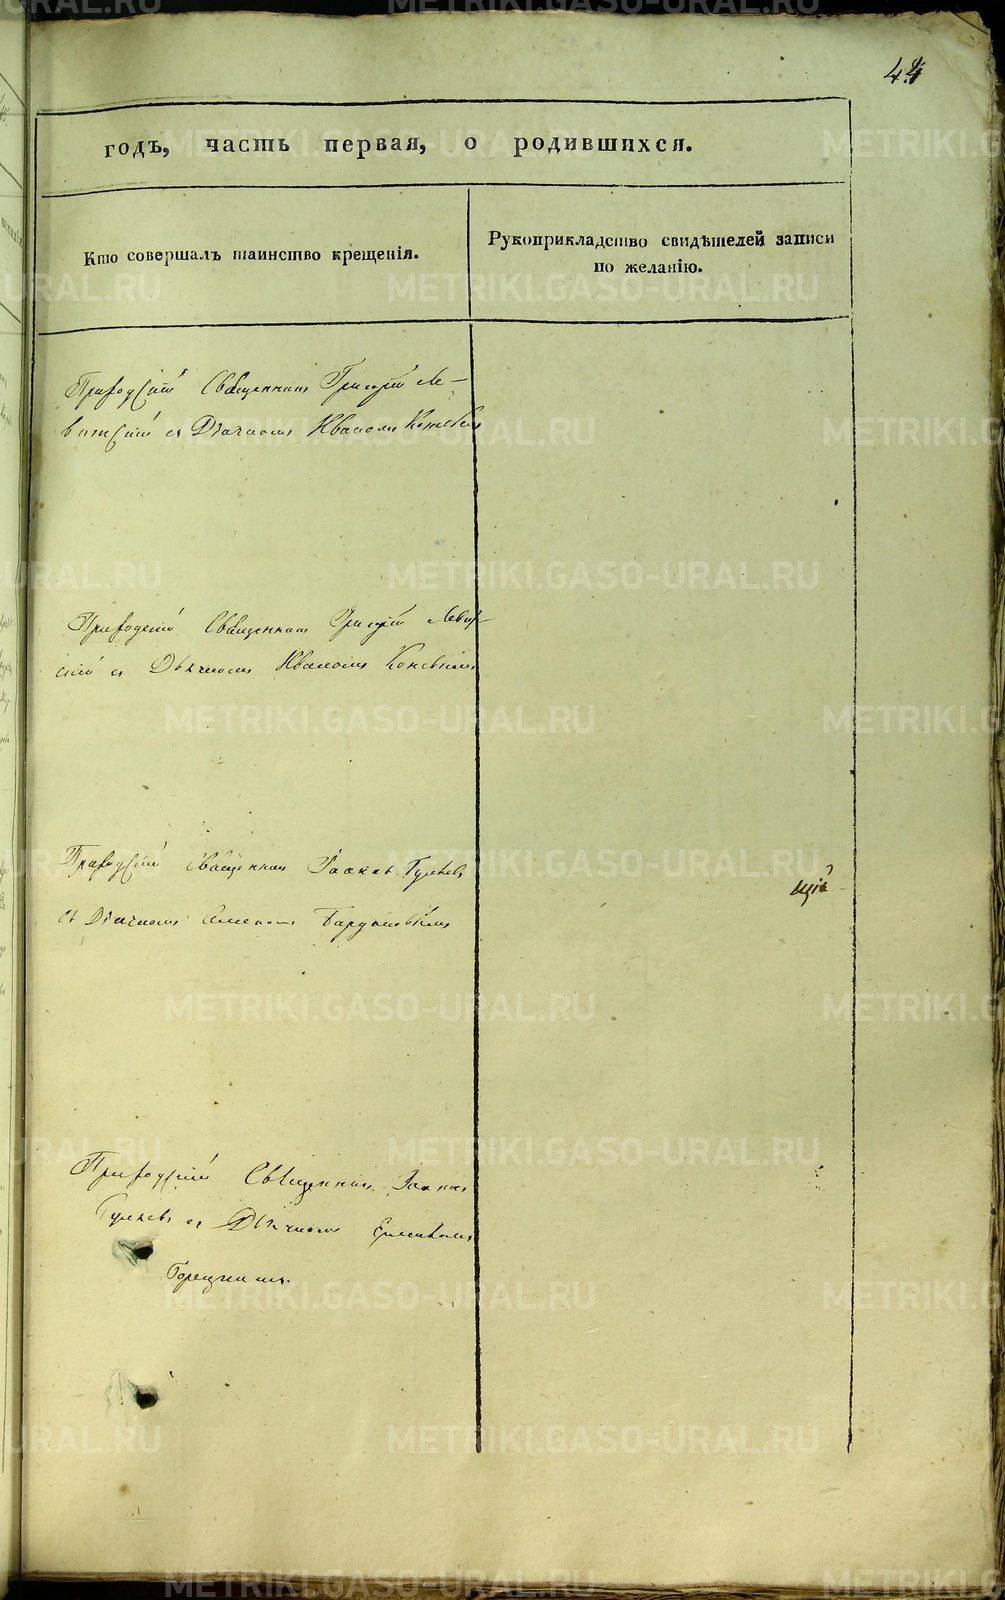 44
годъ, часть первая, о родившихся.
Кто совершалъ таинство крещенія.
Рукоприкладство свидѣтелей записи
по желанію.
Приходскій Священникъ Григорій Ле-
витскій съ Дьячкомъ Иваномъ
Приходскій Священникъ Григорій Левит-
скій съ Дьячкомъ Иваномъ Коневымъ
Приходскій Священникъ Іоаннъ Гуляевъ
съ Дьячкомъ
Приходскій Священникъ Іоаннъ
Гуляевъ съ Дьячкомъ
METRIKI.GASO-URAL.RU